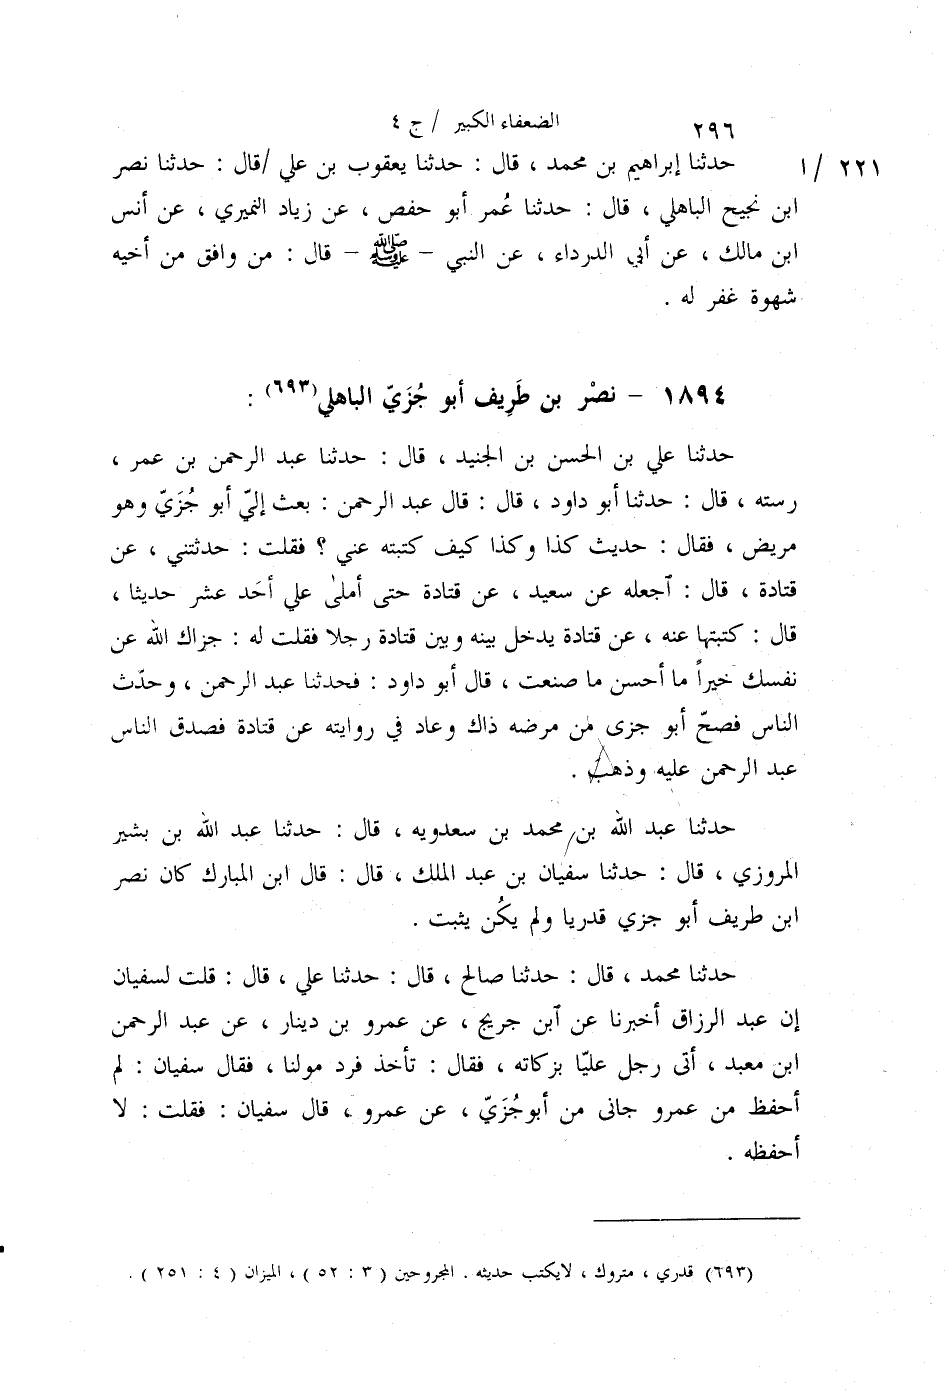 ٢٩٦ الضعفاء الكبير / ج ٤
٢٢١ / ١ حدثنا إبراهيم بن محمد ، قال : حدثنا يعقوب بن علي /قال : حدثنا نصر
ابن نجيح الباهلي ، قال : حدثنا عُمر أبو حفص ، عن زياد النميري ، عن أنس
ابن مالك ، عن أبي الدرداء ، عن النبي – ﷺ – قال : من وافق من أخيه
شهوة غفر له .
١٨٩٤ – نصْر بن طَرِيف أبو جُزَيّ الباهلي(٦٩٣) :
حدثنا علي بن الحسن بن الجنيد ، قال : حدثنا عبد الرحمن بن عمر ،
رسته ، قال : حدثنا أبو داود ، قال : قال عبد الرحمن : بعث إليّ أبو جُزَيّ وهو
مريض ، فقال : حديث كذا وكذا كيف كتبته عني ؟ فقلت : حدثتني ، عن
قتادة ، قال : آجعله عن سعيد ، عن قتادة حتى أملىٰ علي أحَد عشر حديثا ،
قال : كتبتها عنه ، عن قتادة يدخل بينه وبين قتادة رجلا فقلت له : جزاك الله عن
نفسك خيراً ما أحسن ما صنعت ، قال أبو داود : فحدثنا عبد الرحمن ، وحدّث
الناس فصحّ أبو جزى من مرضه ذاك وعاد في روايته عن قتادة فصدق الناس
عبد الرحمن عليه وذهب .
حدثنا عبد الله بن محمد بن سعدويه ، قال : حدثنا عبد الله بن بشير
المروزي ، قال : حدثنا سفيان بن عبد الملك ، قال : قال ابن المبارك كان نصر
ابن طريف أبو جزي قدريا ولم يكُن يثبت .
حدثنا محمد ، قال : حدثنا صالح ، قال : حدثنا علي ، قال : قلت لسفيان
إن عبد الرزاق أخبرنا عن آبن جريج ، عن عمرو بن دينار ، عن عبد الرحمن
ابن معبد ، أتى رجل عليّا بزكاته ، فقال : تأخذ فرد مولنا ، فقال سفيان : لم
أحفظ من عمرو جانى من أبوجُزَيّ ، عن عمرو ، قال سفيان : فقلت : لا
أحفظه .
(٦٩٣) قدري ، متروك ، لايكتب حديثه . المجروحين ( ٣ : ٥٢ ) ، الميزان ( ٤ : ٢٥١ ) .